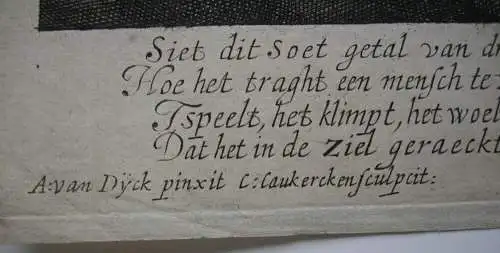 Siet dit Soet getal van
Hoe het traght een menſch te
Tspeelt, het klimpt, het woel
Dat het in de Ziel geraeckt
A: van Dÿck pinxit C: Caukercken ſculpcit: